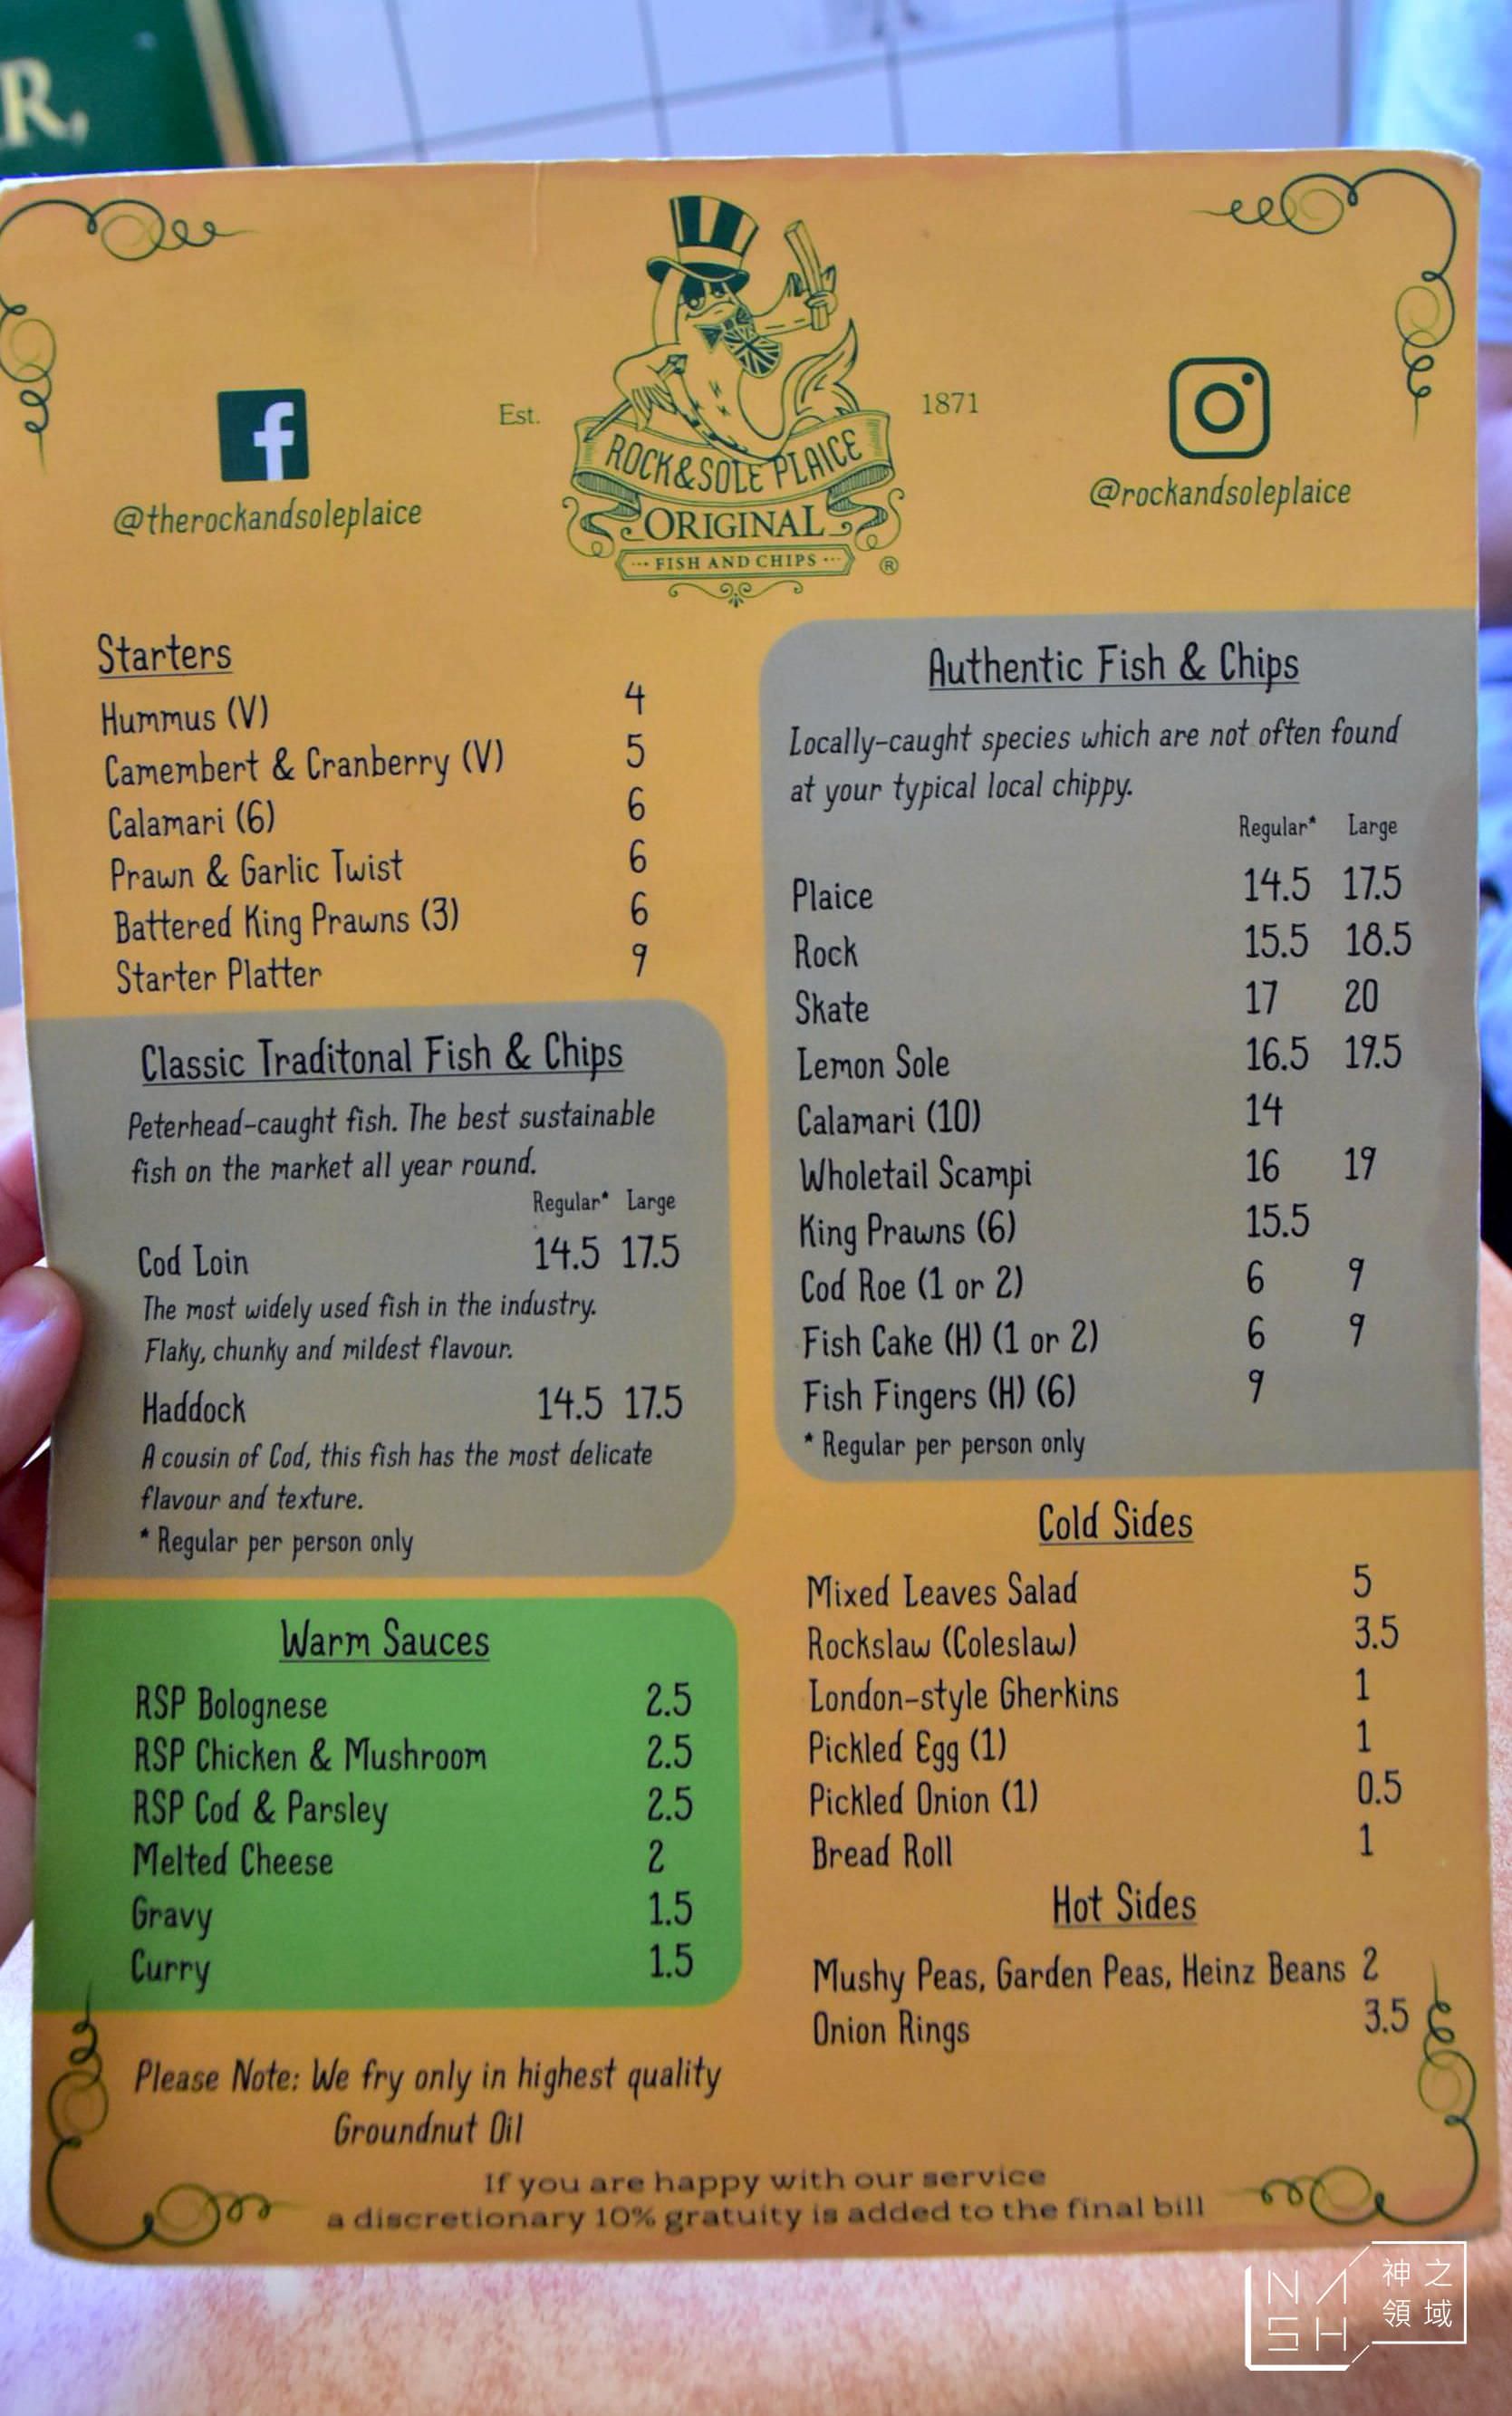 R,
Est.
1871
ROCK&SOLE PLAICE
ORIGINAL
FISH AND CHIPS
®
@therockandsoleplaice
@rockandsoleplaice
Starters
Hummus (V) 4
Camembert & Cranberry (V) 5
Calamari (6) 6
Prawn & Garlic Twist 6
Battered King Prawns (3) 6
Starter Platter 9
Classic Traditonal Fish & Chips
Peterhead-caught fish. The best sustainable
fish on the market all year round.
Regular* Large
Cod Loin 14.5 17.5
The most widely used fish in the industry.
Flaky, chunky and mildest flavour.
Haddock 14.5 17.5
A cousin of Cod, this fish has the most delicate
flavour and texture.
* Regular per person only
Warm Sauces
RSP Bolognese 2.5
RSP Chicken & Mushroom 2.5
RSP Cod & Parsley 2.5
Melted Cheese 2
Gravy 1.5
Curry 1.5
Authentic Fish & Chips
Locally-caught species which are not often found
at your typical local chippy.
Regular* Large
Plaice 14.5 17.5
Rock 15.5 18.5
Skate 17 20
Lemon Sole 16.5 19.5
Calamari (10) 14
Wholetail Scampi 16 19
King Prawns (6) 15.5
Cod Roe (1 or 2) 6 9
Fish Cake (H) (1 or 2) 6 9
Fish Fingers (H) (6) 9
* Regular per person only
Cold Sides
Mixed Leaves Salad 5
Rockslaw (Coleslaw) 3.5
London-style Gherkins 1
Pickled Egg (1) 1
Pickled Onion (1) 0.5
Bread Roll 1
Hot Sides
Mushy Peas, Garden Peas, Heinz Beans 2
Onion Rings 3.5
Please Note: We fry only in highest quality
Groundnut Oil
If you are happy with our service
a discretionary 10% gratuity is added to the final bill
NASH
神之
領域